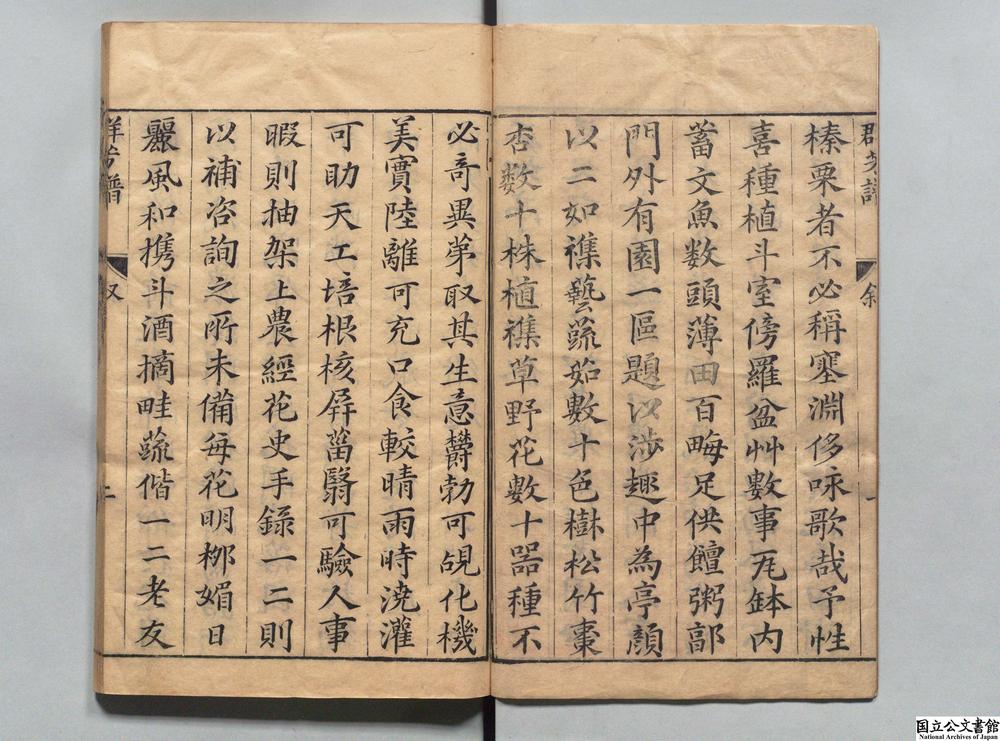 群芳譜 敘 一
榛栗者不必稱塞淵侈咏歌哉予性
喜種植斗室傍羅盆艸數事瓦缽内
蓄文魚数頭薄田百畮足供饘粥郭
門外有園一區題以涉趣中為亭顔
以二如襍藝蔬茹數十色樹松竹棗
杏数十株植襍草野花數十器種不
必奇異第取其生意欝勃可覘化機
美實陸離可充口食較晴雨時澆灌
可助天工培根核屏菑翳可驗人事
暇則抽架上農經花史手錄一二則
以補咨詢之所未備每花明栁媚日
麗風和携斗酒摘畦蔬偕一二老友
群芳譜 叙 二
国立公文書館
National Archives of Japan